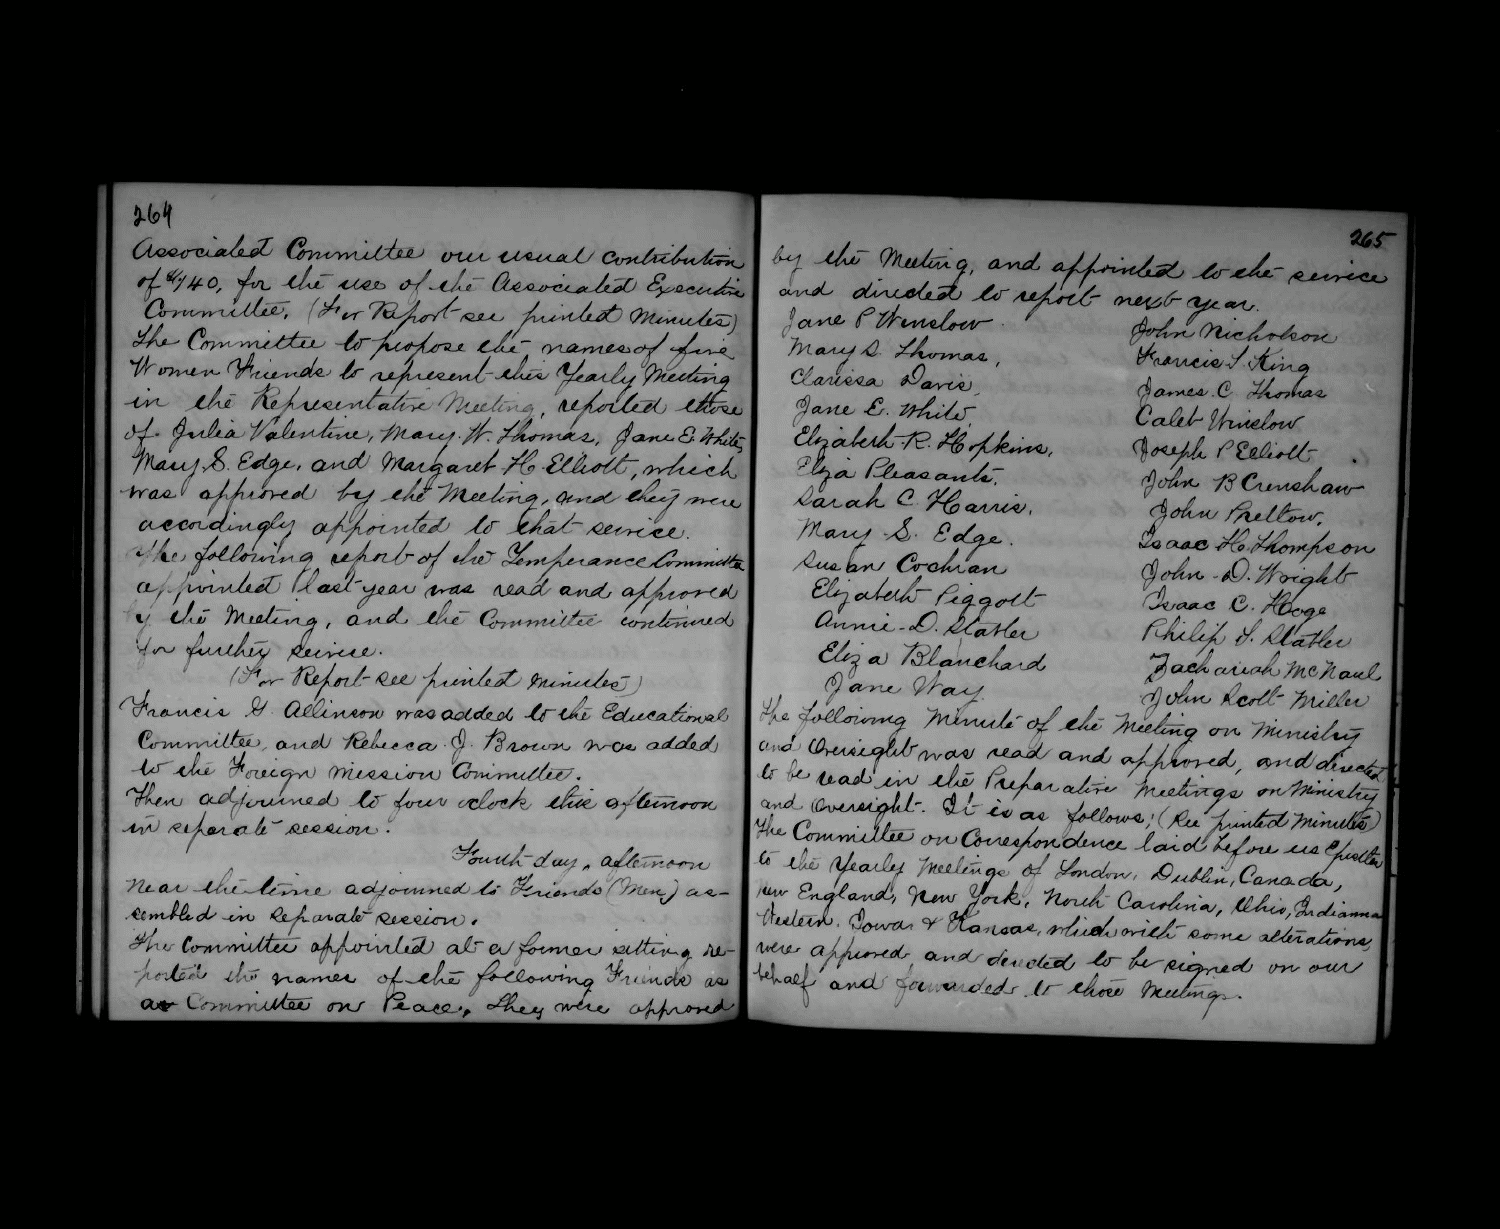 264
Associated Committee our usual contribution
of $140, for the use of the Associated Executive
Committee. (For Report see printed Minutes)
The Committee to propose the names of five
Women Friends to represent this Yearly Meeting
in the Representative Meeting, reported those
of Julia Valentine, Mary W. Thomas, Jane E. White,
Mary S. Edge, and Margaret H. Elliott, which
was approved by the Meeting, and they were
accordingly appointed to that service.
The following report of the Temperance Committee
appointed last year was read and approved
by the Meeting, and the Committee continued
for further service.
(For Report see printed Minutes)
Francis G. Allinson was added to the Educational
Committee, and Rebecca J. Brown was added
to the Foreign Mission Committee.
Then adjourned to four oclock this afternoon
in separate session.
Fourth day, afternoon
Near the time adjourned to Friends (Men) as-
sembled in separate session.
The Committee appointed at a former sitting re-
ported the names of the following Friends as
a Committee on Peace, They were approved
265
by the Meeting, and appointed to the service
and directed to report next year.
Jane P Winslow
Mary S. Thomas,
Clarissa Davis,
Jane E. White,
Elizabeth R. Hopkins,
Eliza Pleasants,
Sarah C. Harris,
Mary S. Edge.
Susan Cochran
Elizabeth Piggott
Annie D. Stabler
Eliza Blanchard
Jane Way
John Nicholson
Francis T. King
James C. Thomas
Caleb Winslow
Joseph P Elliott
John B Crenshaw
John Pretlow.
Isaac H. Thompson
John D. Wright
Isaac C. Hoge
Philip T. Stabler
Zachariah McNaul
John Scott Miller
The following Minute of the Meeting on Ministry
and Oversight was read and approved, and directed
to be read in the Preparative Meetings on Ministry
and Oversight. It is as follows; (See printed Minutes)
The Committee on Correspondence laid before us Epistles
to the Yearly Meetings of London, Dublin, Canada,
New England, New York, North Carolina, Ohio, Indianna
Western, Iowa & Kansas, which with some alterations,
were approved, and directed to be signed on our
behalf and forwarded to those Meetings.